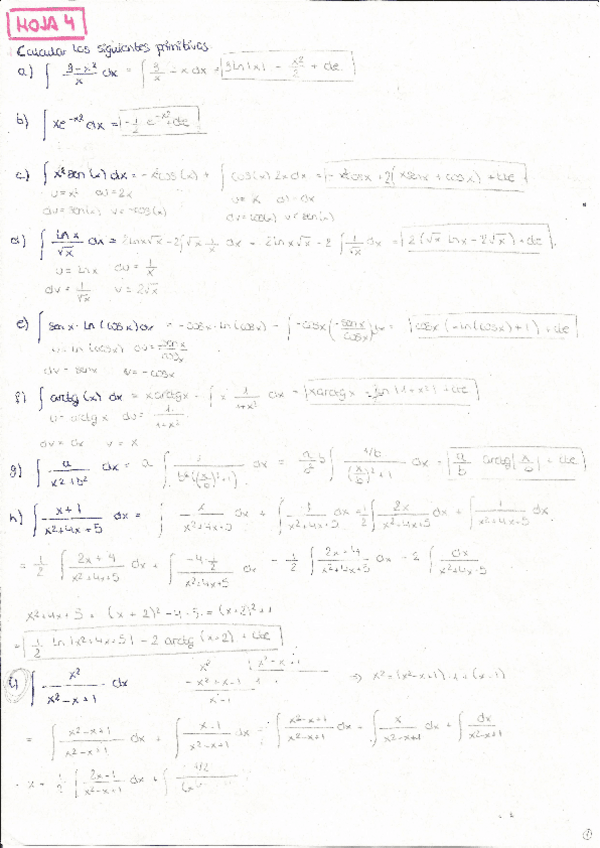 HOJA 4
Calcular las siguientes primitivas
a) ∫ (9-x²)/x dx = ∫ 9/x - x dx = 9 ln|x| - x²/2 + cte.
b) ∫ x e^(-x²) dx = -1/2 e^(-x²) + cte
c) ∫ x² sen(x) dx = -x² cos(x) + ∫ cos(x) 2x dx = -x² cosx + 2(x senx + cosx) + cte
u = x² du = 2x u = x du = dx
dv = sen(x) v = -cos(x) dv = cos(x) v = sen(x)
d) ∫ lnx/√x dx = 2 lnx √x - 2 ∫ √x 1/x dx = 2 lnx √x - 2 ∫ 1/√x dx = 2(√x lnx - 2√x) + cte
u = lnx du = 1/x
dv = 1/√x v = 2√x
e) ∫ senx · ln(cosx) dx = -cosx · ln(cosx) - ∫ -cosx (-senx/cosx) dx = cosx (-ln(cosx) + 1) + cte
u = ln(cosx) du = -senx/cosx
dv = senx v = -cosx
f) ∫ arctg(x) dx = x arctgx - ∫ x 1/(1+x²) dx = x arctgx - ln|1+x²| + cte
u = arctgx du = 1/(1+x²)
dv = dx v = x
g) ∫ a/(x²+b²) dx = a ∫ 1/(b²((x/b)²+1)) dx = a/b² b ∫ (1/b)/((x/b)²+1) dx = a/b arctg|x/b| + cte
h) ∫ (-x+1)/(x²+4x+5) dx = ∫ x/(x²+4x+5) dx + ∫ 1/(x²+4x+5) dx = 1/2 ∫ 2x/(x²+4x+5) dx + ∫ 1/(x²+4x+5) dx
= 1/2 ∫ (2x+4)/(x²+4x+5) dx + ∫ (-4·1/2)/(x²+4x+5) dx = 1/2 ∫ (2x+4)/(x²+4x+5) dx - 2 ∫ dx/(x²+4x+5)
x²+4x+5 = (x+2)² - 4+5 = (x+2)²+1
= 1/2 ln|x²+4x+5| - 2 arctg(x+2) + cte
i) ∫ x²/(x²-x+1) dx x² | x²-x+1 → x² = (x²-x+1)·1 + (x-1)
-x²+x-1 1
x-1
= ∫ (x²-x+1)/(x²-x+1) dx + ∫ (x-1)/(x²-x+1) dx = ∫ (x²-x+1)/(x²-x+1) dx + ∫ x/(x²-x+1) dx + ∫ dx/(x²-x+1)
x + 1/2 ∫ (2x-1)/(x²-x+1) dx + ∫ 1/2
1